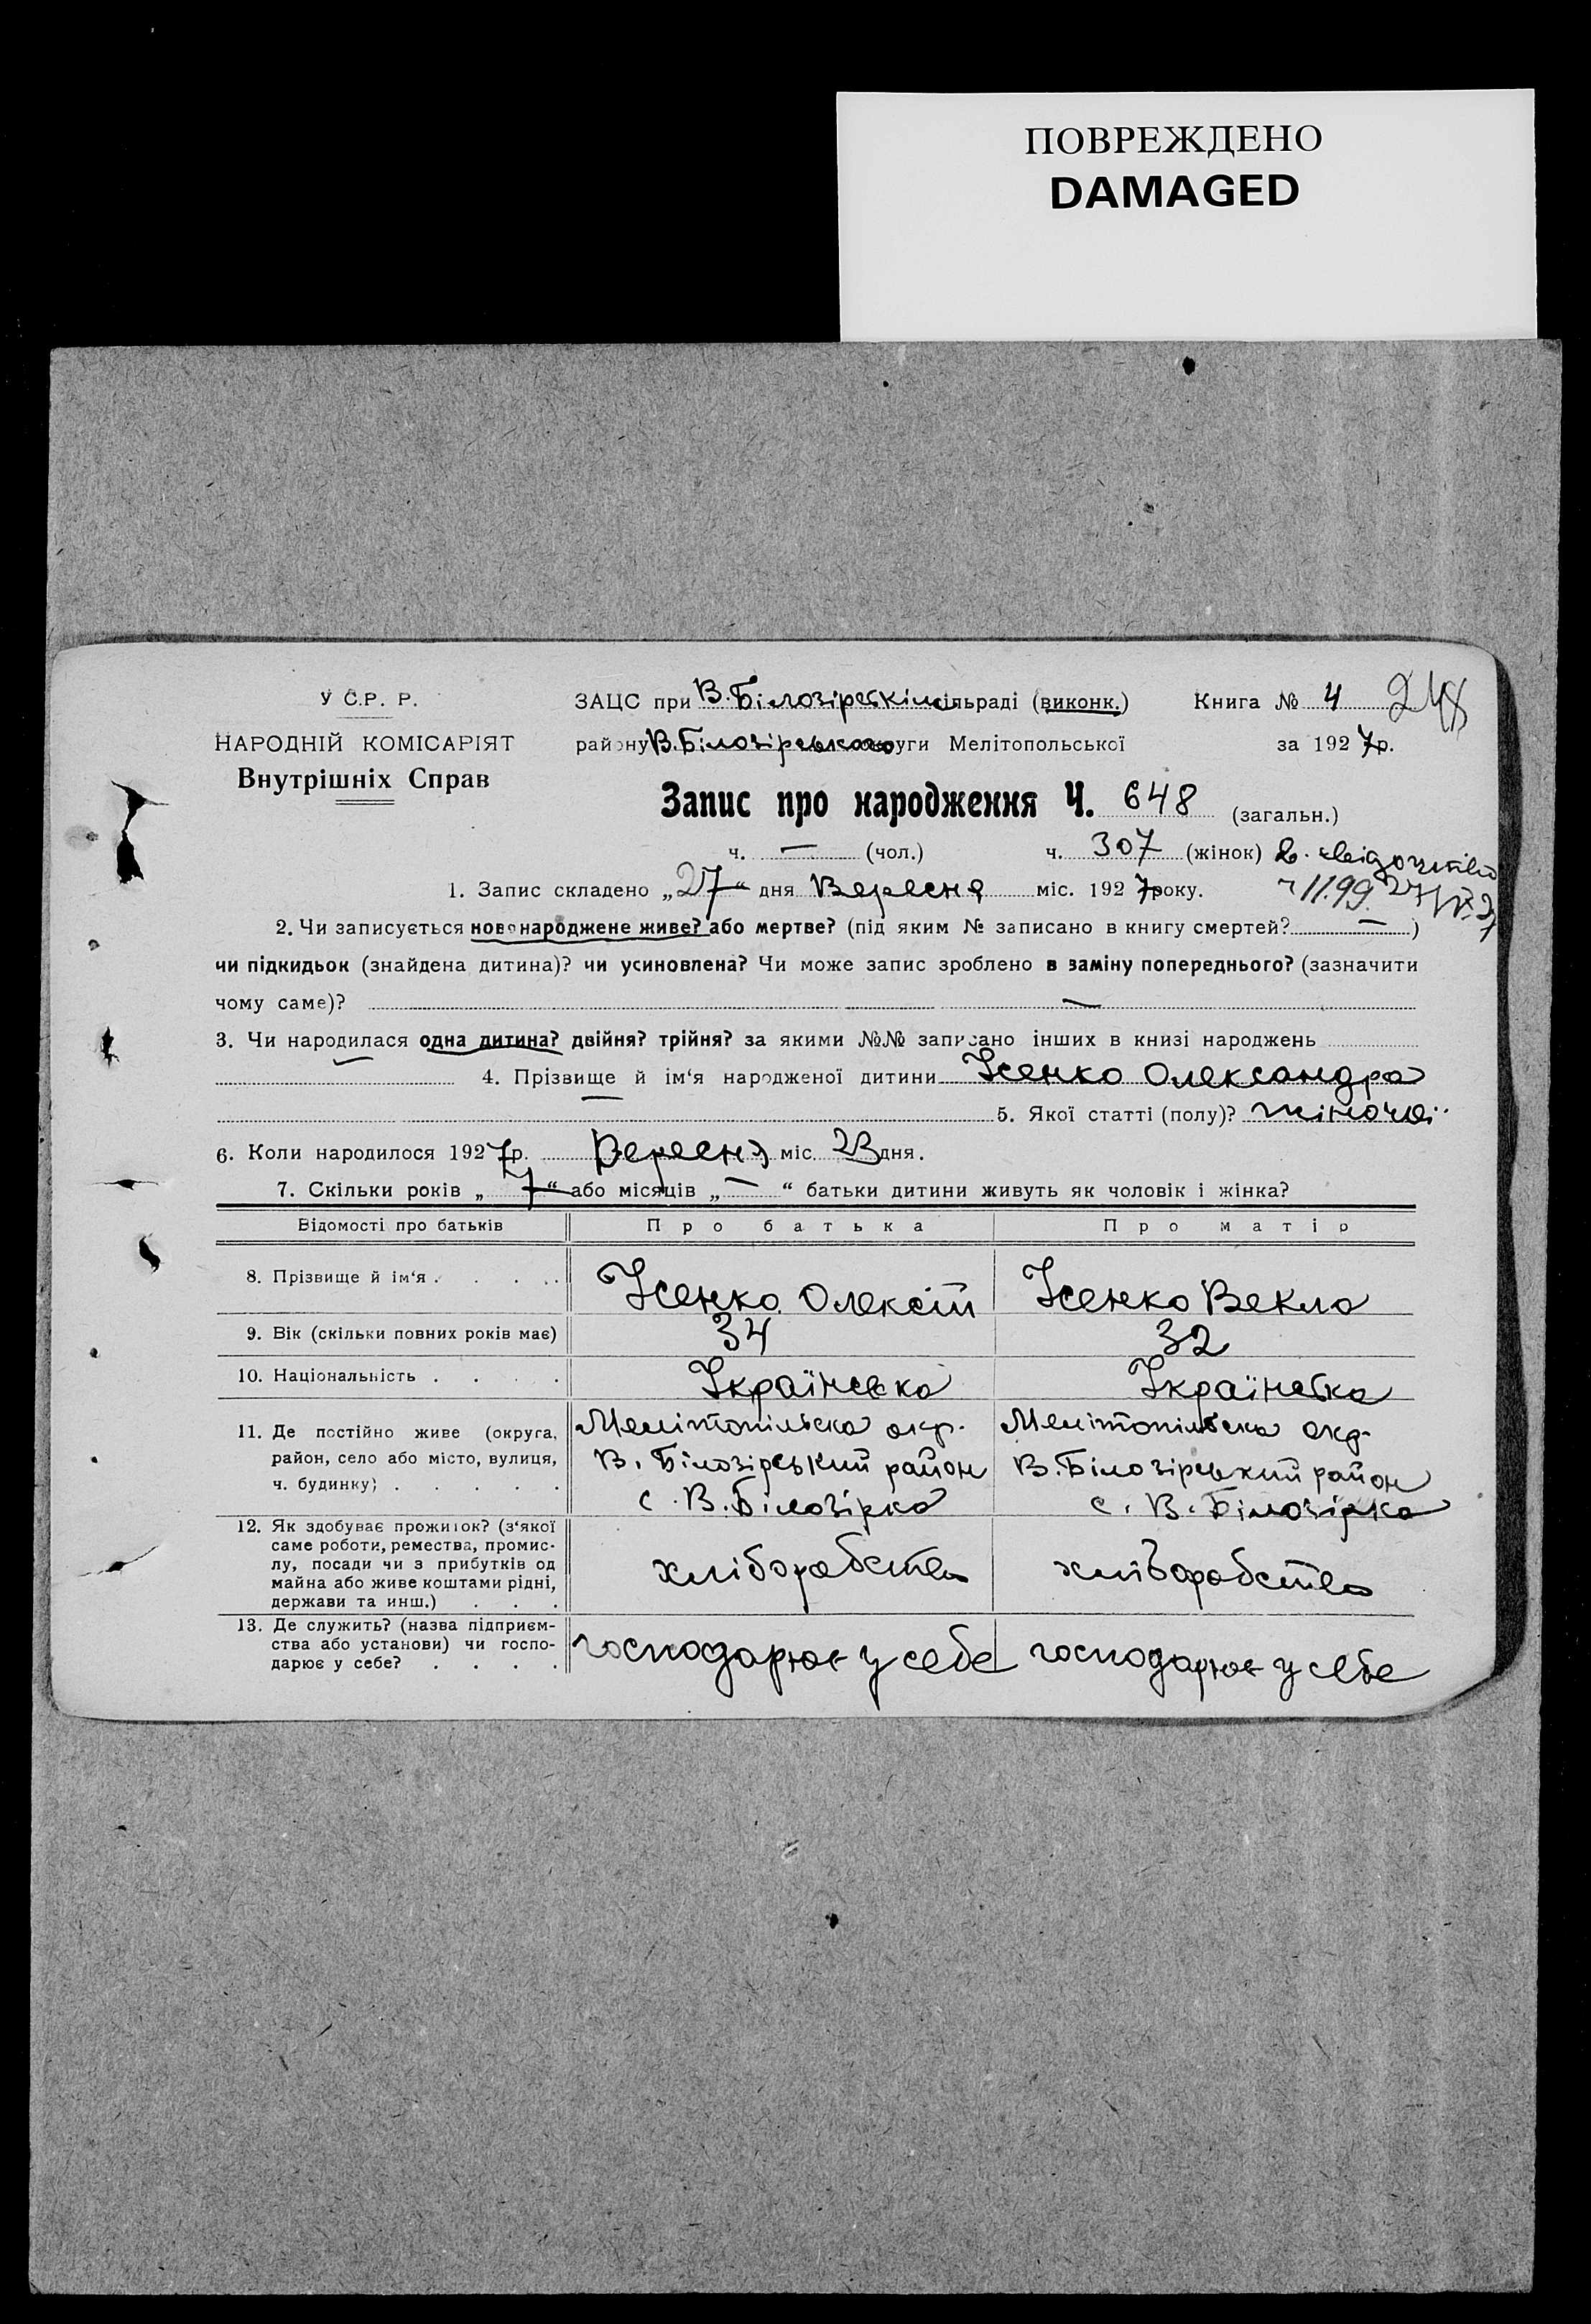 ПОВРЕЖДЕНО
DAMAGED
У С.Р. Р.
НАРОДНІЙ КОМІСАРІЯТ
Внутрішніх Справ
ЗАЦС при В. Білозірскім сільраді (виконк.)
району В. Білозірського округи Мелітопольської
Книга № 4 248
за 1927 р.
Запис про народження Ч. 648 (загальн.)
ч. — (чол.) ч. 307 (жінок)
1. Запис складено „27“ дня Вересня міс. 1927 року. 1199
2. Чи записується новонароджене живе? або мертве? (під яким № записано в книгу смертей? — )
чи підкидьок (знайдена дитина)? чи усиновлена? Чи може запис зроблено в заміну попереднього? (зазначити
чому саме)? —
3. Чи народилася одна дитина? двійня? трійня? за якими №№ записано інших в книзі народжень
— 4. Прізвище й ім‘я народженої дитини Ісенко Олександра
— 5. Якої статті (полу)? жіночої
6. Коли народилося 1927 р. Вересня міс. 23 дня.
7. Скільки років „7“ або місяців „—“ батьки дитини живуть як чоловік і жінка?
Відомості про батьків Про батька Про матір
8. Прізвище й ім‘я . . . . . Ісенко Олексій Ісенко Векла
9. Вік (скільки повних років має) 34 32
10. Національність . . . . . Українська Українська
11. Де постійно живе (округа,
район, село або місто, вулиця,
ч. будинку) . . . . .
Мелітопільска окр.
В. Білозірський район
с. В. Білозірка
Мелітопільска окр.
В. Білозірський район
с. В. Білозірка
12. Як здобуває прожиток? (з‘якої
саме роботи, ремества, промис-
лу, посади чи з прибутків од
майна або живе коштами рідні,
держави та инш.) . . .
хліборобство
хліборобство
13. Де служить? (назва підприєм-
ства або установи) чи госпо-
дарює у себе? . . . .
господарює у себе
господарює у себе